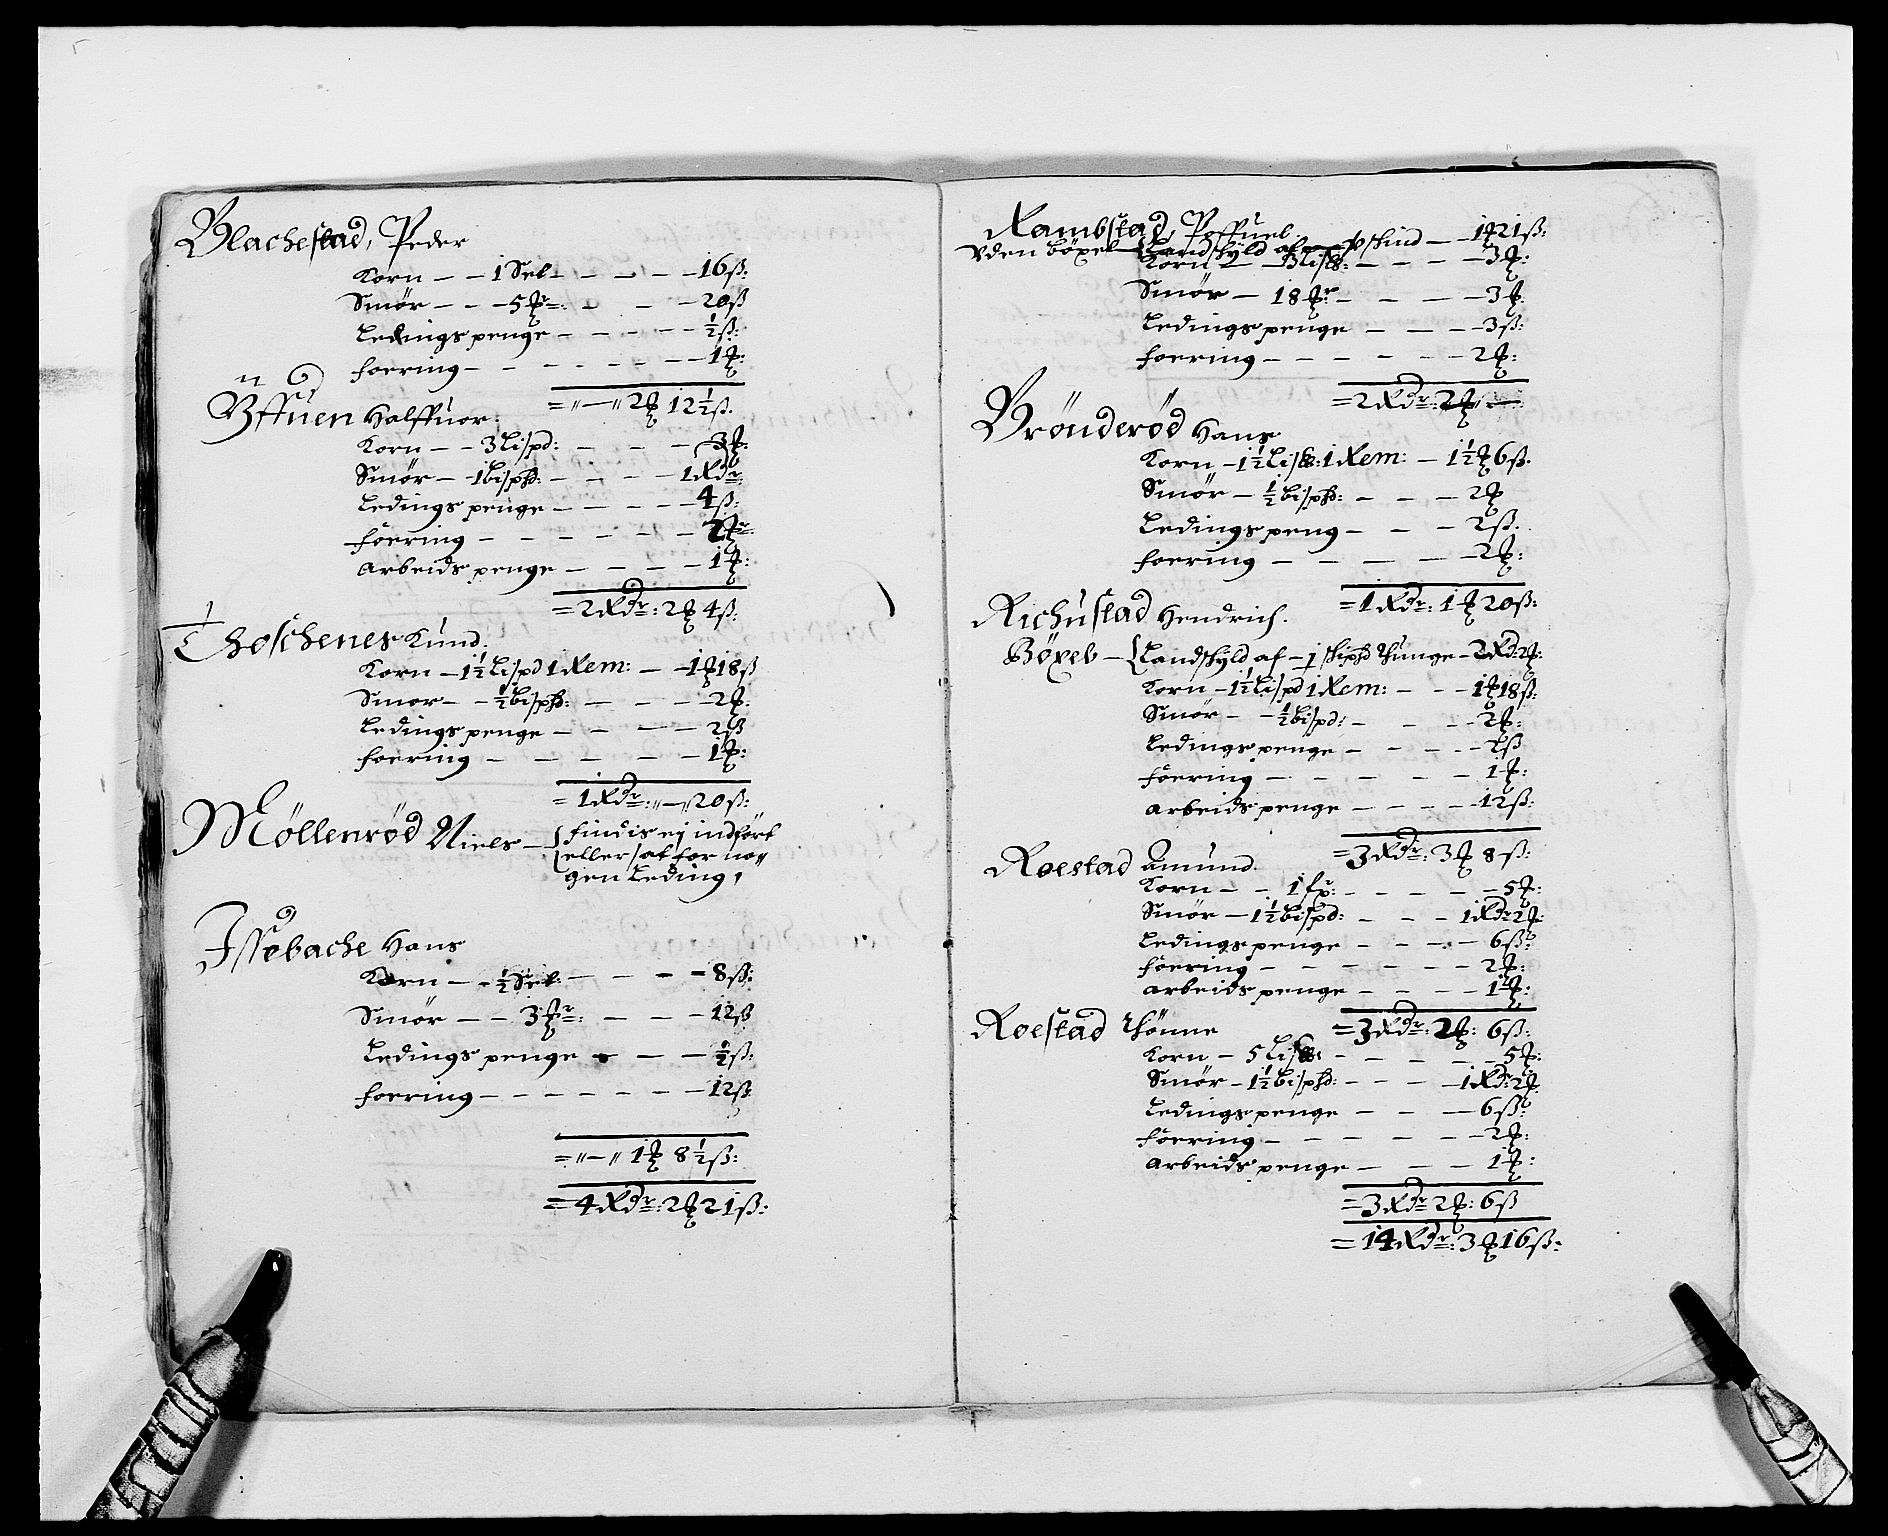 Blachestad, Peder
Korn – – 1 Sel – – – – 16 ß:
Smør – – 5 ℔r: – – – 20 ß
Ledings penge – – – – ½ ß:
foering – – – – – – 1 ℔:
= „ – „ 2 ℔ 12½ ß.
Yffuen Halffuor:
Korn – – 3 Lispd: – – – 3 ℔:
Smør – 1 bispd: – – – 1 Rdr:
Ledings penge – – – – 4 ß:
föering – – – – – – 2 ℔r:
arbeids penge – – – – 1 ℔:
= 2 Rdr: 2 ℔ 4 ß:
Thoschenes Kund:
Korn – 1½ Lispd 1 Rem: – – 1 ℔ 18 ß
Smør – – ½ bispd: – – – 2 ℔:
Ledings penge – – – – 2 ß
foering – – – – – – 1 ℔:
= 1 Rdr: „ – „ 20 ß:
Møllenrød Niels – { findis ej indført
eller sat for no„
gen Leding,
Issebache Hans
Korn – – ½ Sel: – – – – 8 ß:
Smør – – 3 ℔r: – – – 12 ß
Ledings penge – – – ½ ß:
foering – – – – – – 12 ß
= „ – „ 1 ℔ 8½ ß:
= 4 Rdr: 2 ℔ 21 ß:
Rambstad, Poffuel.
Vden böxel – { Landskyld af skind – – 1 ℔ 21 ß:
Korn – – 3 Lispd: – – – – 3 ℔:
Smör – 18 ℔r – – – – 3 ℔
Ledings penge – – – 3 ß:
foering – – – – – – 2 ℔:
= 2 Rdr: 2 ℔
Brönderöd Hans
Korn – 1½ Lispd: 1 Rem: – 1½ ℔ 6 ß.
Smör – ½ bispd: – – – 2 ℔
Ledings peng – – – 2 ß.
foering – – – – – 2 ℔:
= 1 Rdr: 1 ℔ 20 ß:
Richustad Hendrich.
Böxel – { Landskyld af – 1 skipd thunge – 2 Rdr 2 ℔:
Korn – 1½ Lispd 1 Rem: – – – 1 ℔ 18 ß:
Smör – – ½ bispd: – – – 2 ℔:
Ledings penge – – – – 2 ß
föering – – – – – – 1 ℔:
arbeids penge – – – – 12 ß:
= 3 Rdr: 3 ℔ 8 ß:
Roestad Amund.
Korn – – 1 fr: – – – – – 5 ℔:
Smör – 1½ bispd: – – – 1 Rdr 2 ℔:
Ledings penge – – – – 6 ß:
föering – – – – – – 2 ℔:
arbeids penge – – – – 1 ℔:
= 3 Rdr: 2 ℔: 6 ß:
Roestad thönne
Korn – 5 Lispd: – – – – – 5 ℔:
Smör – 1½ bispd: – – – – 1 Rdr 2 ℔
Ledings penge – – – 6 ß:
föering – – – – – – 2 ℔:
arbeids penge – – – 1 ℔:
= 3 Rdr 2 ℔: 6 ß
= 14 Rdr: 3 ℔ 16 ß: